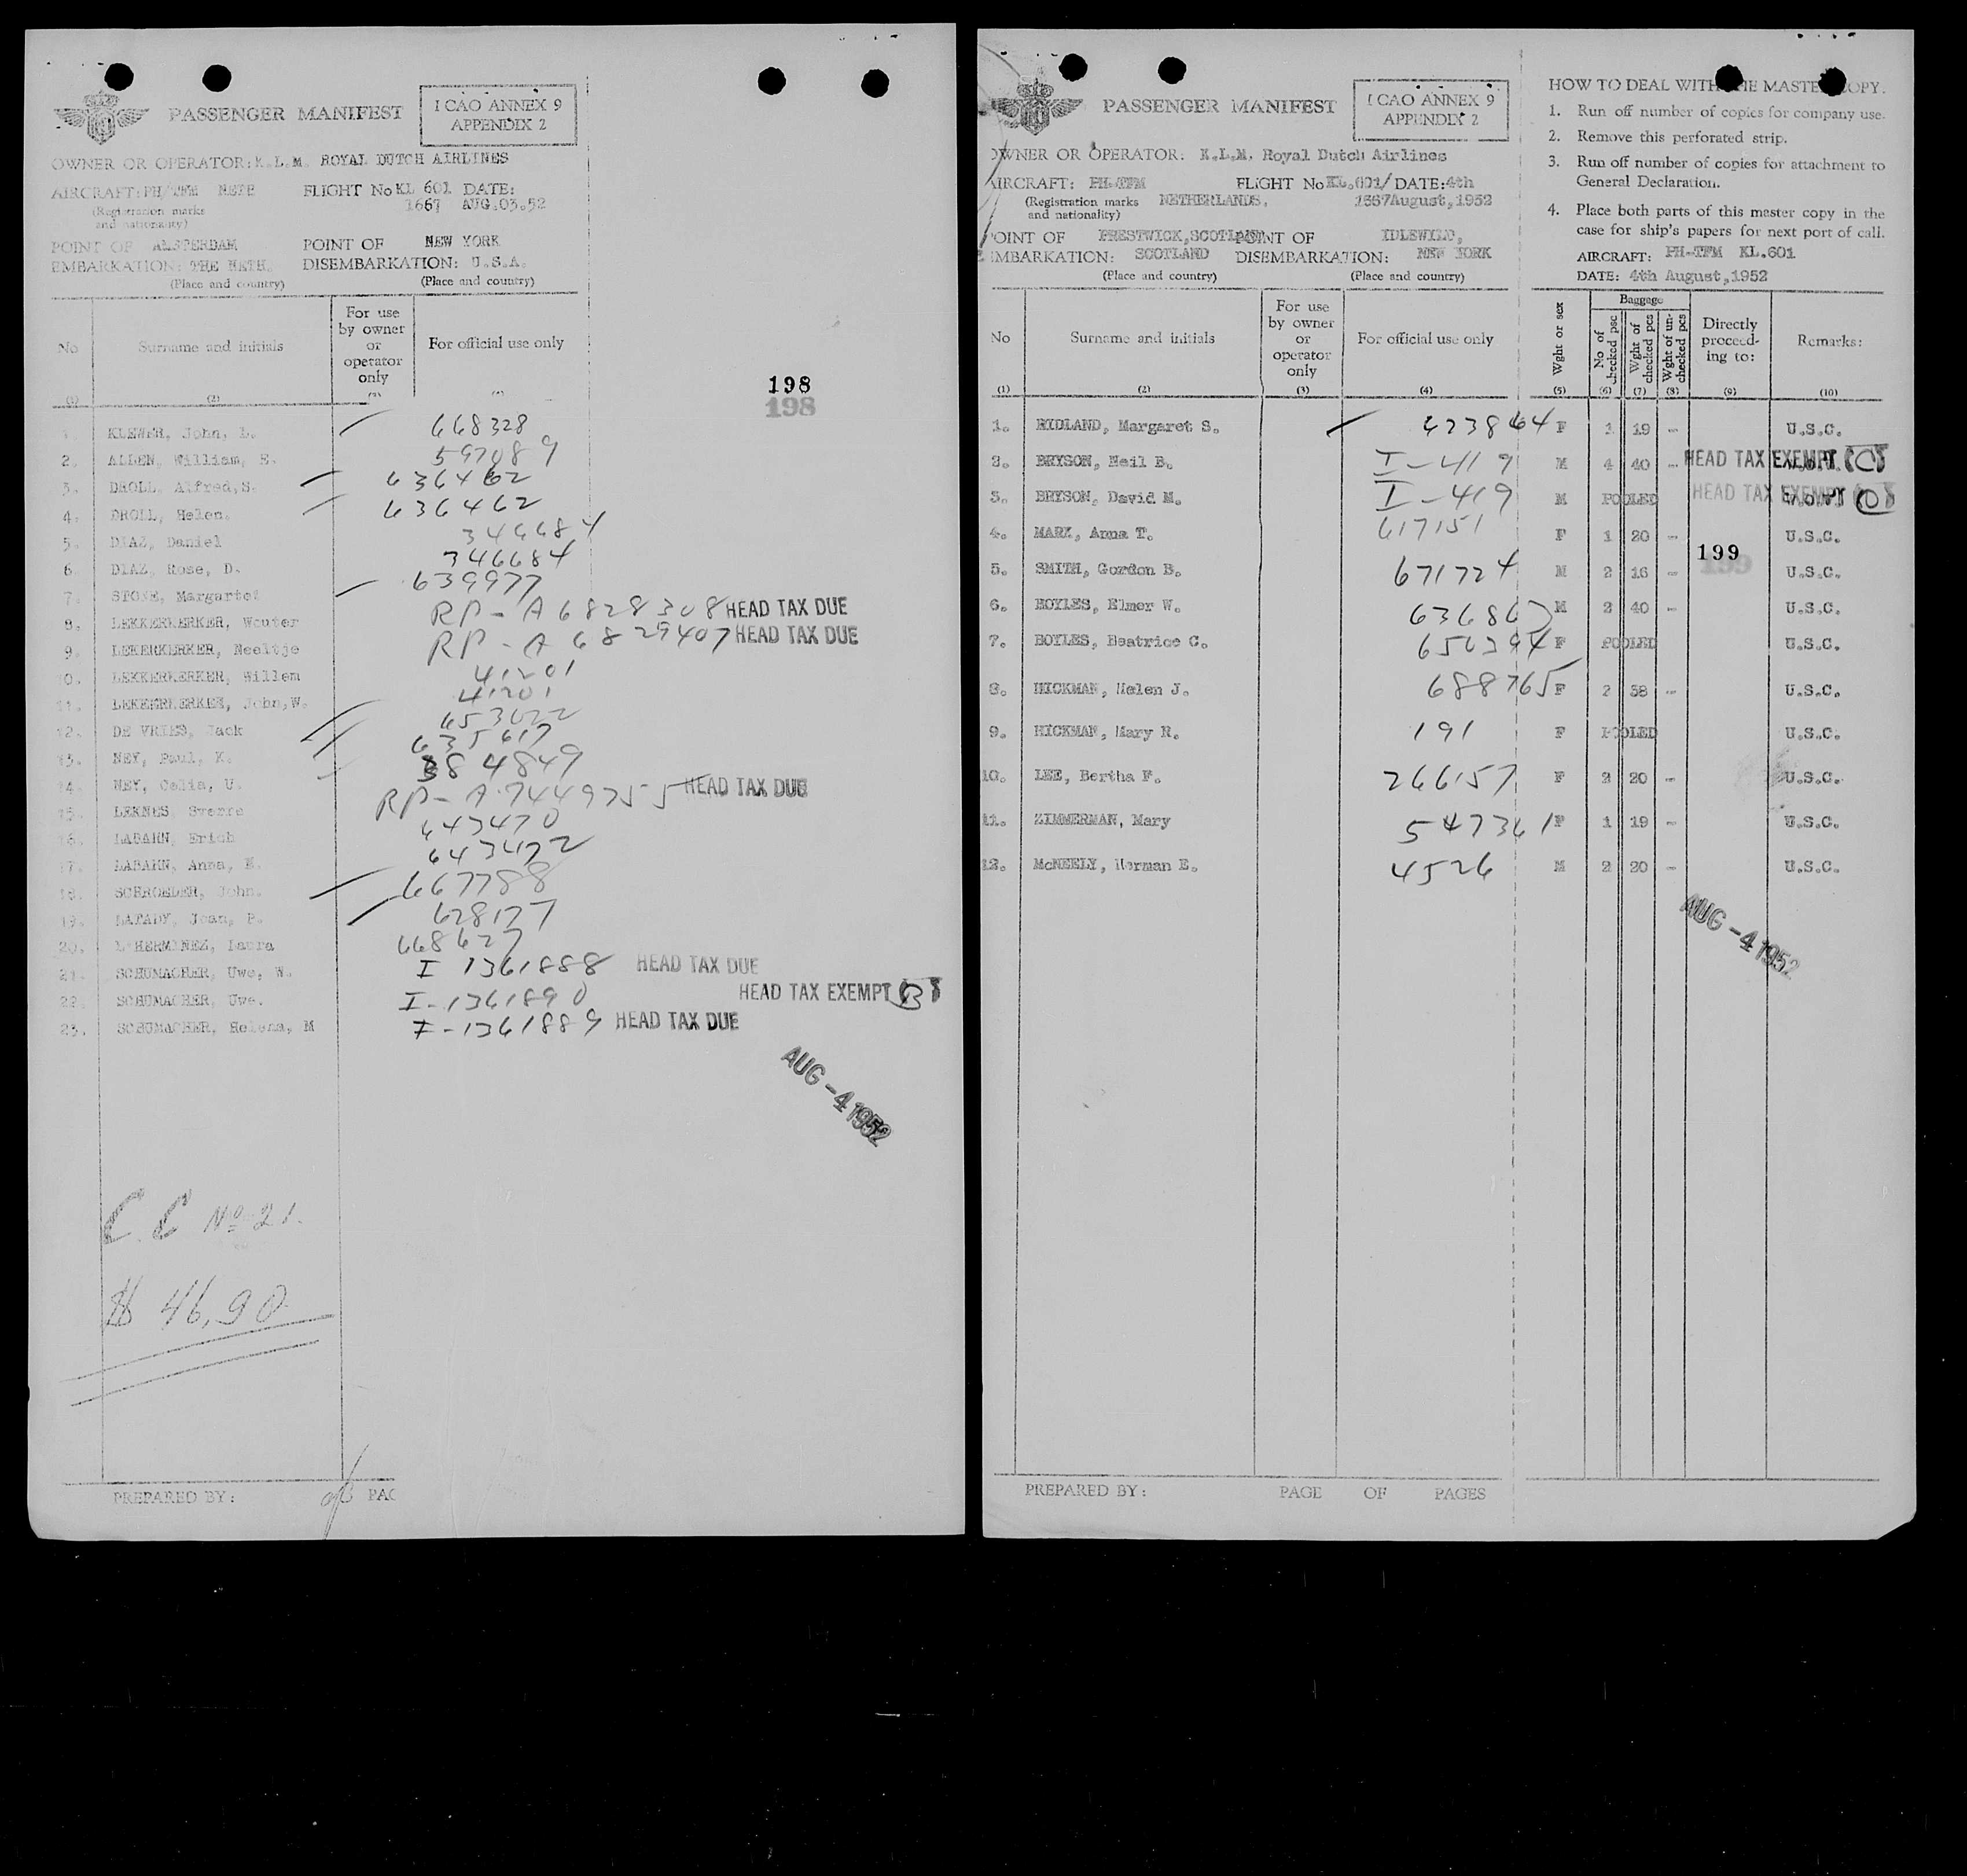 PASSENGER MANIFEST
I CAO ANNEX 9
APPENDIX 2
OWNER OR OPERATOR: K.L.M. ROYAL DUTCH AIRLINES
AIRCRAFT: PH/TFM NETH FLIGHT No KL 601 DATE:
(Registration marks and nationality) 1667 AUG.03.52
POINT OF AMSTERDAM POINT OF NEW YORK
EMBARKATION: THE NETH. DISEMBARKATION: U.S.A.
(Place and country) (Place and country)
No Surname and initials For use by owner or operator only For official use only
(1) (2)
198
198
1. KLEWER, John, L. 668328
2. ALLEN, William, E. 597089
3. DROLL, Alfred,S. 636462
4. DROLL, Helen. 636462
5. DIAZ, Daniel 346684
6. DIAZ, Rose, D. 346684
7. STONE, Margartet 639977
8. LEKKERKERKER, Wouter RP-A 6828308 HEAD TAX DUE
9. LEKERKERKER, Neeltje RP-A 6829407 HEAD TAX DUE
10. LEKKERKERKER, Willem 41201
11. LEKKERKERKER, John,W. 41201
12. DE VRIES, Jack 653022
13. NEY, Paul, K. 635617
14. NEY, Celia, U. 384849
15. LEKNES, Sverre RP-A 7449755 HEAD TAX DUE
16. LABAHN, Erich 643470
17. LABAHN, Anna, E. 643472
18. SCHROEDER, John. 667788
19. LATADY, Joan, P. 628137
20. L'HERMINEZ, Laura 668627
21. SCHUMACHER, Uwe, W. I 1361888 HEAD TAX DUE
22. SCHUMACHER, Uwe. I-1361890 HEAD TAX EXEMPT B
23. SCHUMACHER, Helena, M I-1361889 HEAD TAX DUE
AUG -4 1952
C.C No 21.
$ 46,90
PREPARED BY: PAG
PASSENGER MANIFEST
I CAO ANNEX 9
APPENDIX 2
OWNER OR OPERATOR: K.L.M. Royal Dutch Airlines
AIRCRAFT: PH-TFM FLIGHT No KL.601/ DATE: 4th
(Registration marks and nationality) NETHERLANDS. 1667 August,1952
POINT OF PRESTWICK,SCOTLAND POINT OF IDLEWILD,
EMBARKATION: SCOTLAND DISEMBARKATION: NEW YORK
(Place and country) (Place and country)
HOW TO DEAL WITH THE MASTER COPY.
1. Run off number of copies for company use.
2. Remove this perforated strip.
3. Run off number of copies for attachment to
General Declaration.
4. Place both parts of this master copy in the
case for ship's papers for next port of call.
AIRCRAFT: PH-TFM KL.601
DATE: 4th August,1952
No Surname and initials For use by owner or operator only For official use only Wght or sex Baggage No of checked psc Wght of checked pcs Wght of un-checked pcs Directly proceed-ing to: Remarks:
(1) (2) (3) (4) (5) (6) (7) (8) (9) (10)
1. RIDLAND, Margaret S. 423864 F 1 19 - U.S.C.
2. BRYSON, Neil B. I-419 M 4 40 - HEAD TAX EXEMPT C
3. BRYSON, David M. I-419 M POOLED HEAD TAX EXEMPT C
4. MARX, Anna T. 617151 F 1 20 - U.S.C.
199
199
5. SMITH, Gordon B. 671724 M 2 16 - U.S.C.
6. BOYLES, Elmer W. 636863 M 2 40 - U.S.C.
7. BOYLES, Beatrice C. 650394 F POOLED U.S.C.
8. HICKMAN, Helen J. 688765 F 2 38 - U.S.C.
9. HICKMAN, Mary R. 191 F POOLED U.S.C.
10. LEE, Bertha F. 266157 F 2 20 - U.S.C.
11. ZIMMERMAN, Mary 547361 F 1 19 - U.S.C.
12. McNEELY, Herman E. 4526 M 2 20 - U.S.C.
AUG -4 1952
PREPARED BY: PAGE OF PAGES